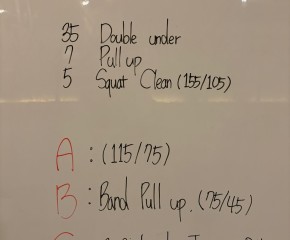 35 Double under
7 Pull up
5 Squat Clean (155/105)
A : (115/75)
B : Band Pull up. (75/45)